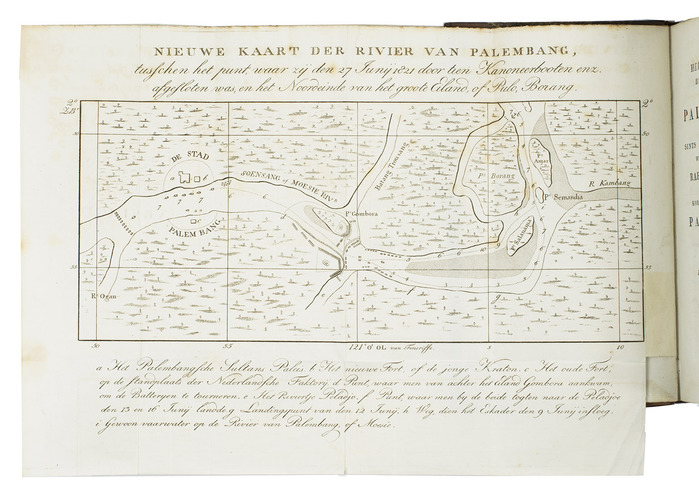 NIEUWE KAART DER RIVIER VAN PALEMBANG,
tusschen het punt, waar zij den 27 Junij 1821 door tien Kanoneerbooten enz.
afgesloten was, en het Noordeinde van het groote Eiland, of Pulo, Borang.
DE STAD
PALEMBANG
SOENSANG of MOESIE RIVr.
Batang Tomiang
Po Gombora
Po Borang
R. Kambang
Po Semandia
Po Salanama
Rr Ogan
30 55 121° 0' OL van Teneriffe 5 10
a Het Palembangsche Sultans Paleis. b Het nieuwe Fort, of de jonge Kraton. c Het oude Fort,
op de standplaats der Nederlandsche Faktorij. d Punt, waar men van achter het Eiland Gombora aankwam,
om de Batterijen te tourneren. e Het Riviertje Peladjo. f Punt, waar men bij de beide togten naar de Peladjoe
den 15 en 16 Junij landde. g Landingspunt van den 12 Junij. h Weg, dien het Eskader den 9 Junij insloeg.
i Gewoon vaarwater op de Rivier van Palembang, of Moesie.